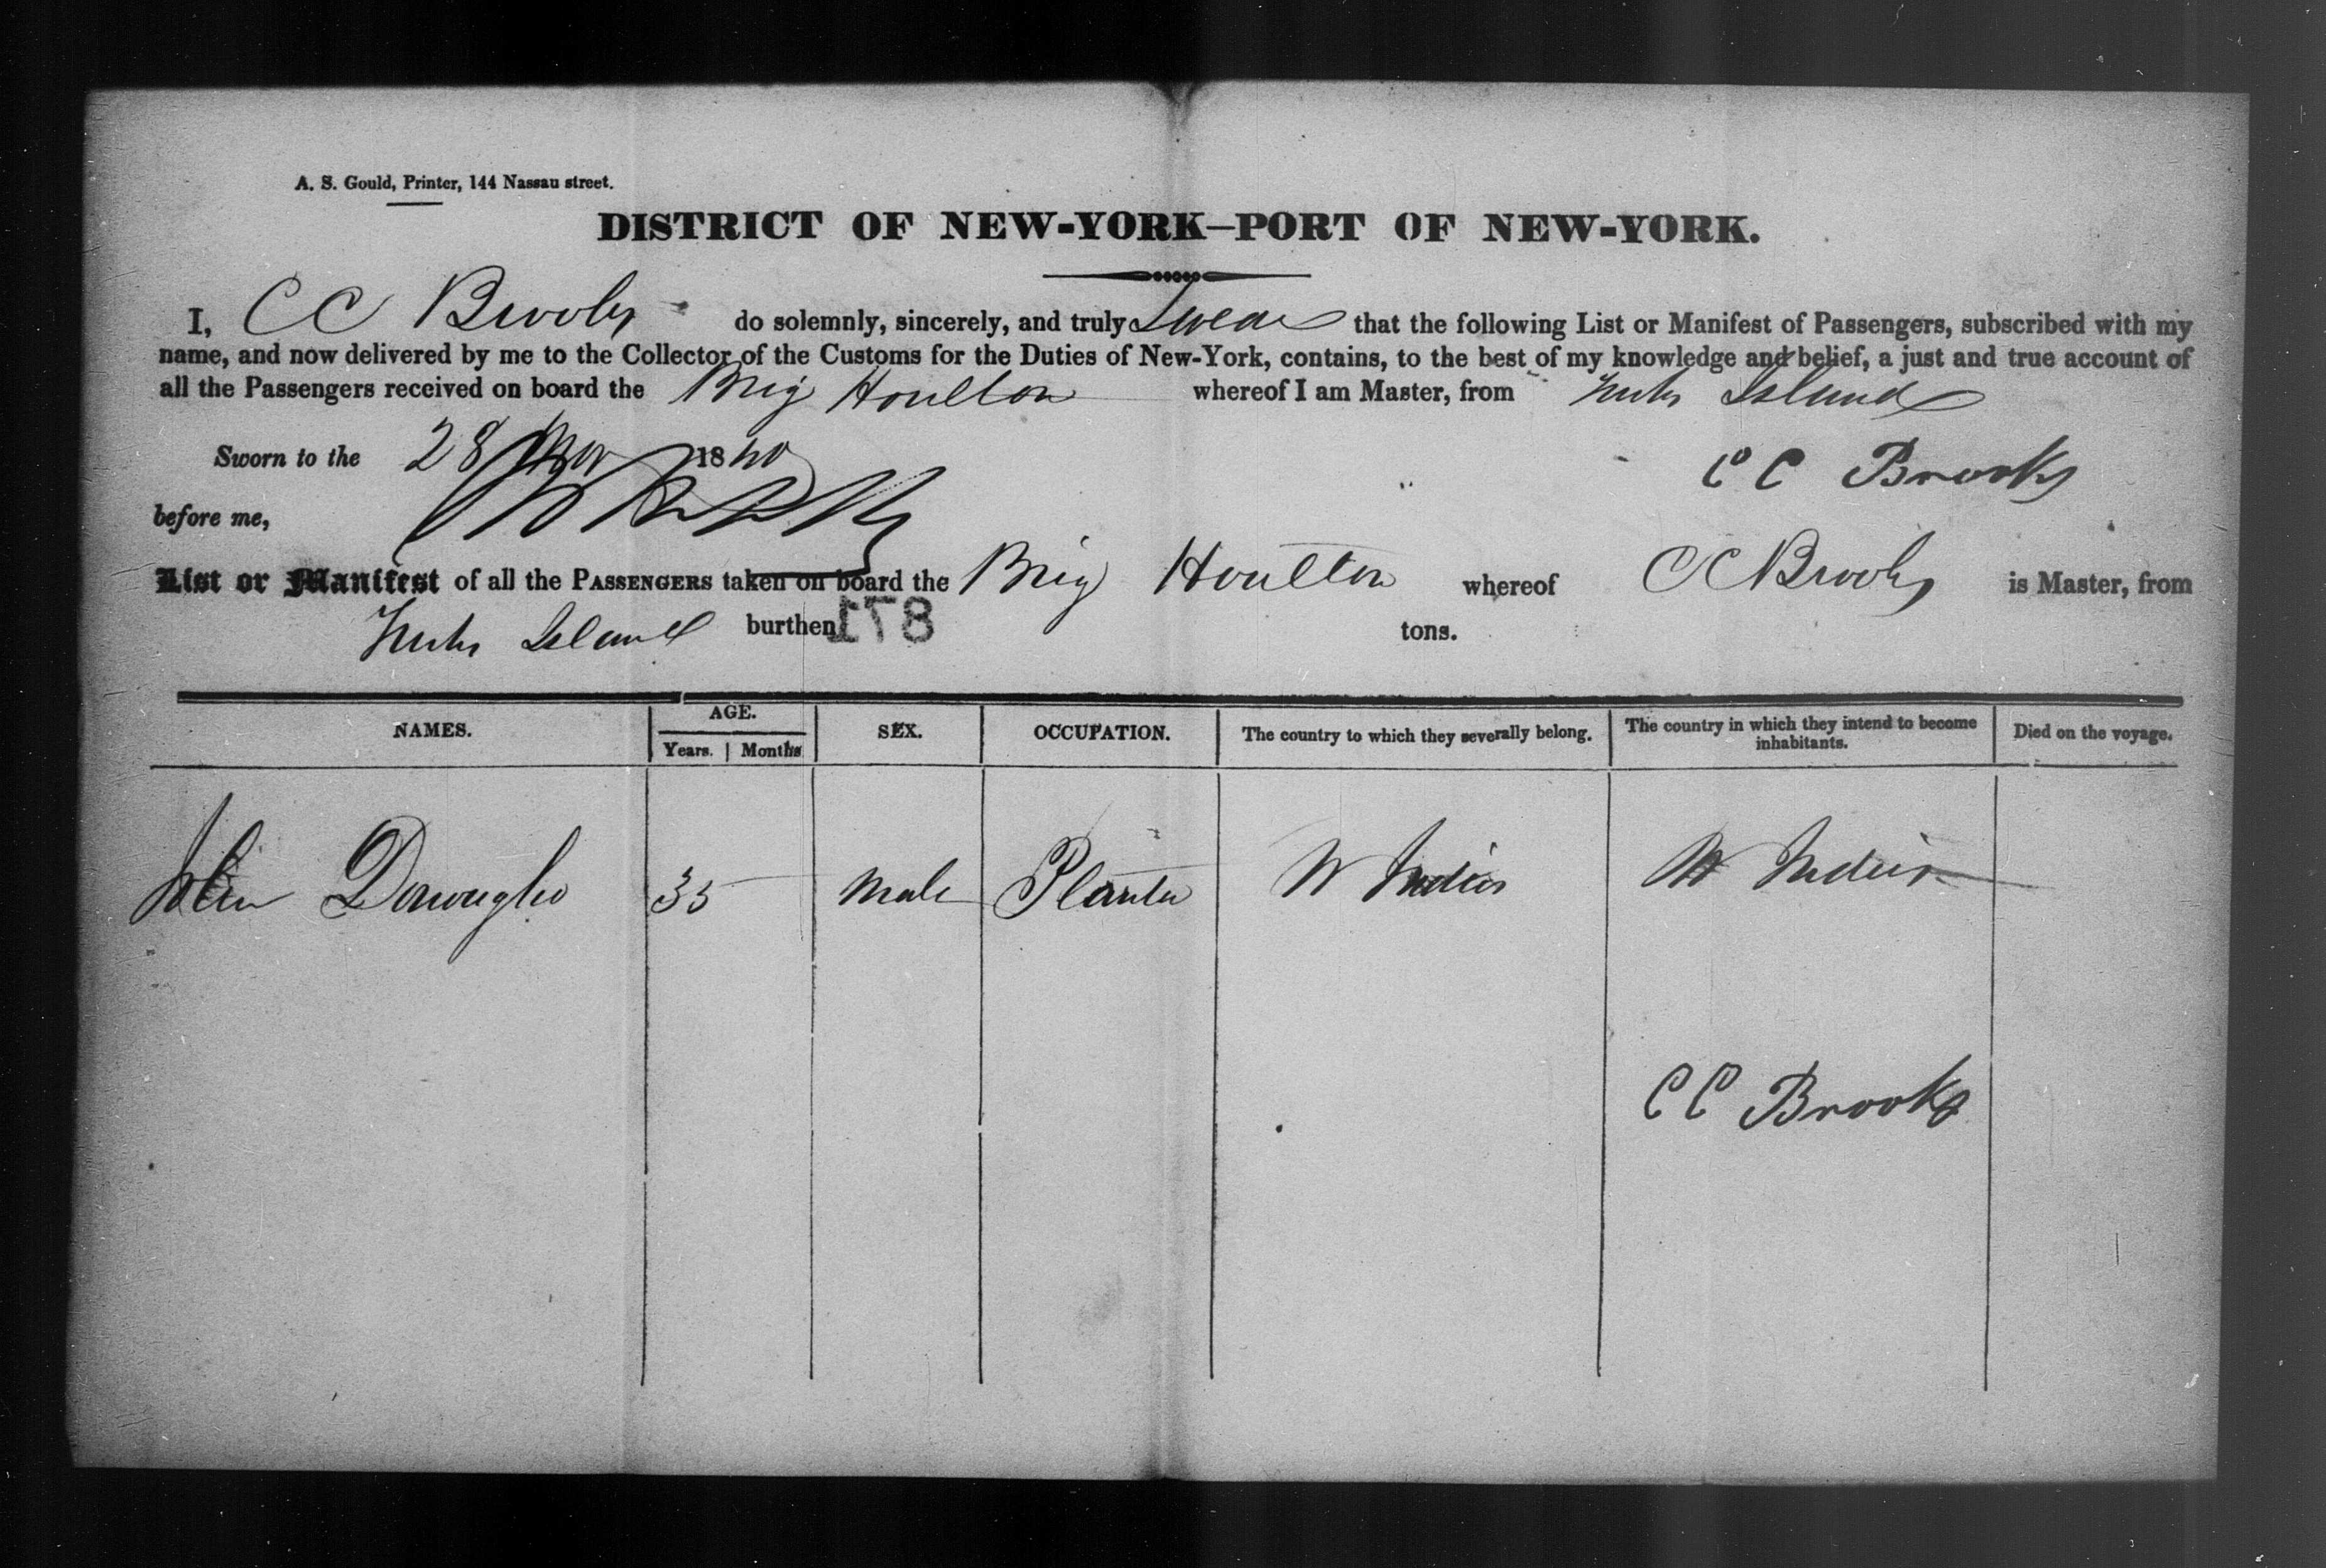 A. S. Gould, Printer, 144 Nassau street.
DISTRICT OF NEW-YORK—PORT OF NEW-YORK.
I, C C Brooks do solemnly, sincerely, and truly Swear that the following List or Manifest of Passengers, subscribed with my
name, and now delivered by me to the Collector of the Customs for the Duties of New-York, contains, to the best of my knowledge and belief, a just and true account of
all the Passengers received on board the Brig Houlton whereof I am Master, from Turks Island
Sworn to the 28 Nov 1840
C C Brooks
before me,
List or Manifest of all the PASSENGERS taken on board the Brig Houlton whereof C C Brooks is Master, from
Turks Island burthen 178 tons.
NAMES. AGE. SEX. OCCUPATION. The country to which they severally belong. The country in which they intend to become inhabitants. Died on the voyage.
Years. Months
John 35 Male Planter W Indies W Indies
C C Brooks